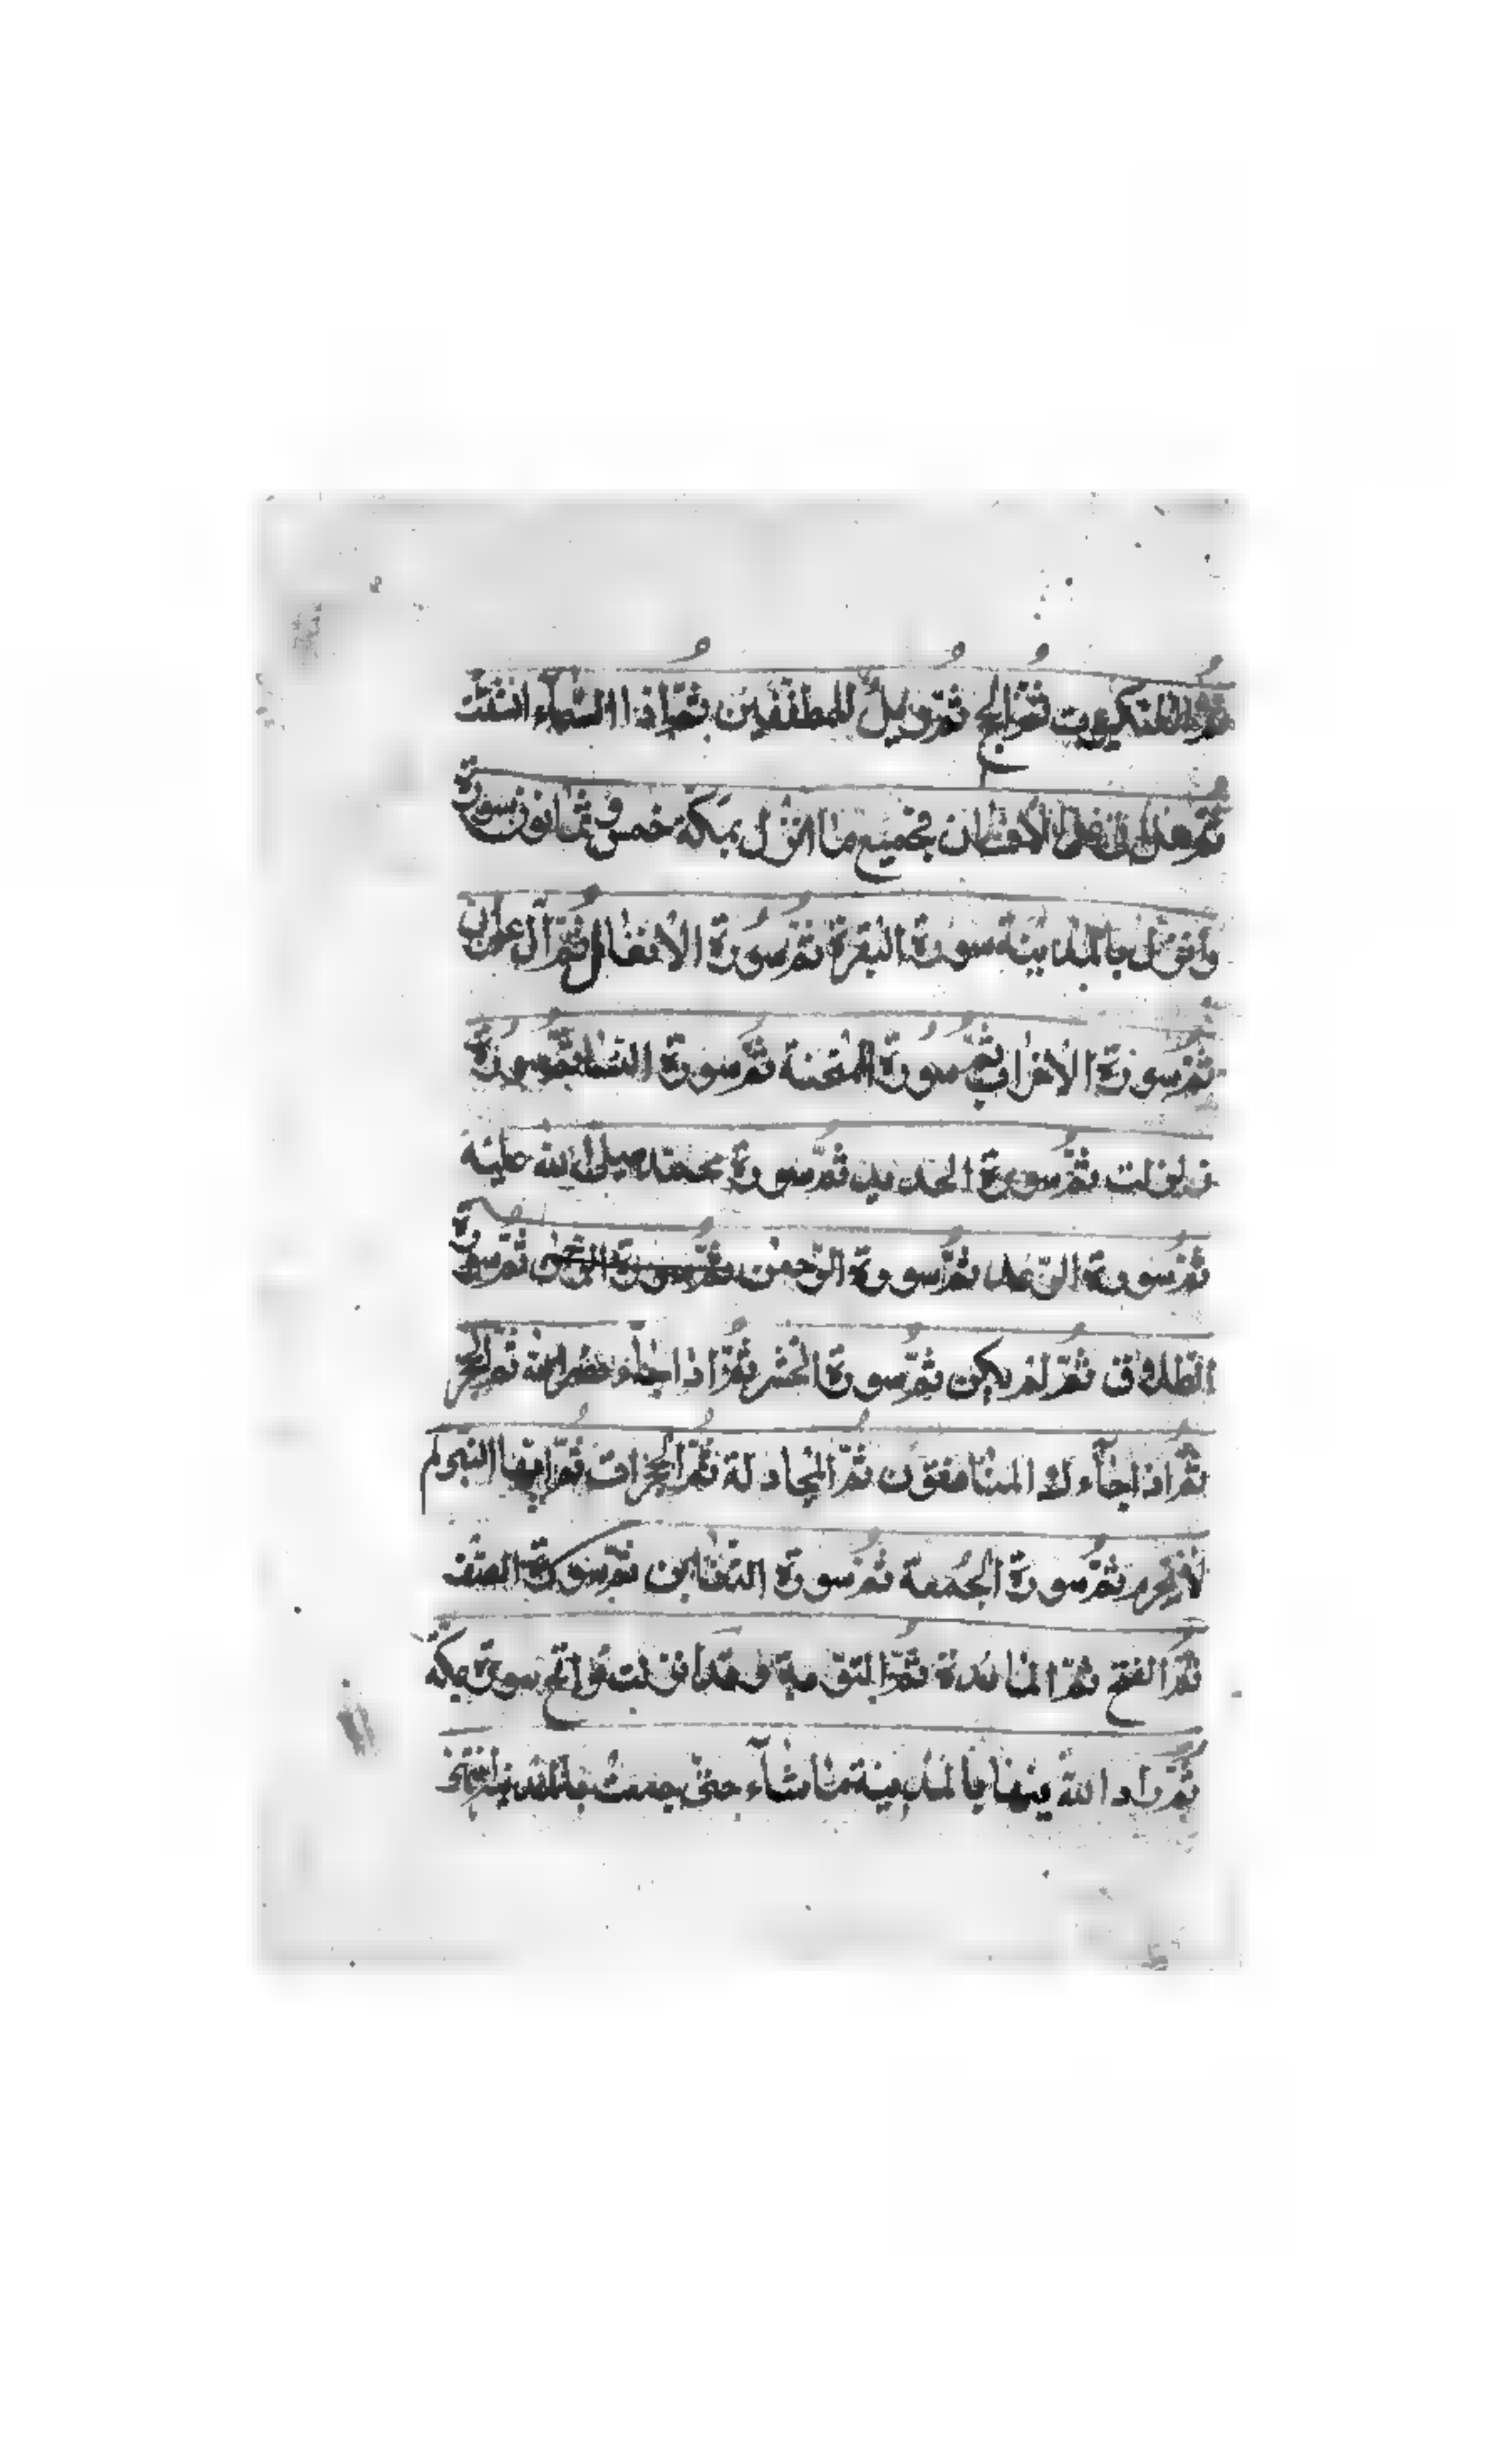 ثم العنكبوت ثم الحج ثم ويل للمطففين ثم اذا السماء انشقت
ثم هل اتى على الانسان فجميع ما انزل بمكة خمس وثمانون سورة
وانزل بالمدينة سورة البقرة ثم سورة الانفال ثم آل عمران
ثم سورة الاحزاب ثم سورة الممتحنة ثم سورة النساء ثم سورة
زلزلت ثم سورة الحديد ثم سورة محمد صلى الله عليه
ثم سورة الرعد ثم سورة الرحمن ثم سورة ثم سورة
الطلاق ثم لم يكن ثم سورة الحشر ثم اذا جاء نصر الله ثم
ثم اذا جآءك المنافقون ثم المجادلة ثم الحجرات ثم ايها النبي لم
لم تحرم ثم سورة الجمعة ثم سورة التغابن ثم سورة الصف
ثم الفتح ثم المائدة ثم التوبة وقد انزلت فواتح سورة بمكة
ثم زاد الله فيها بالمدينة ما شآء حتى